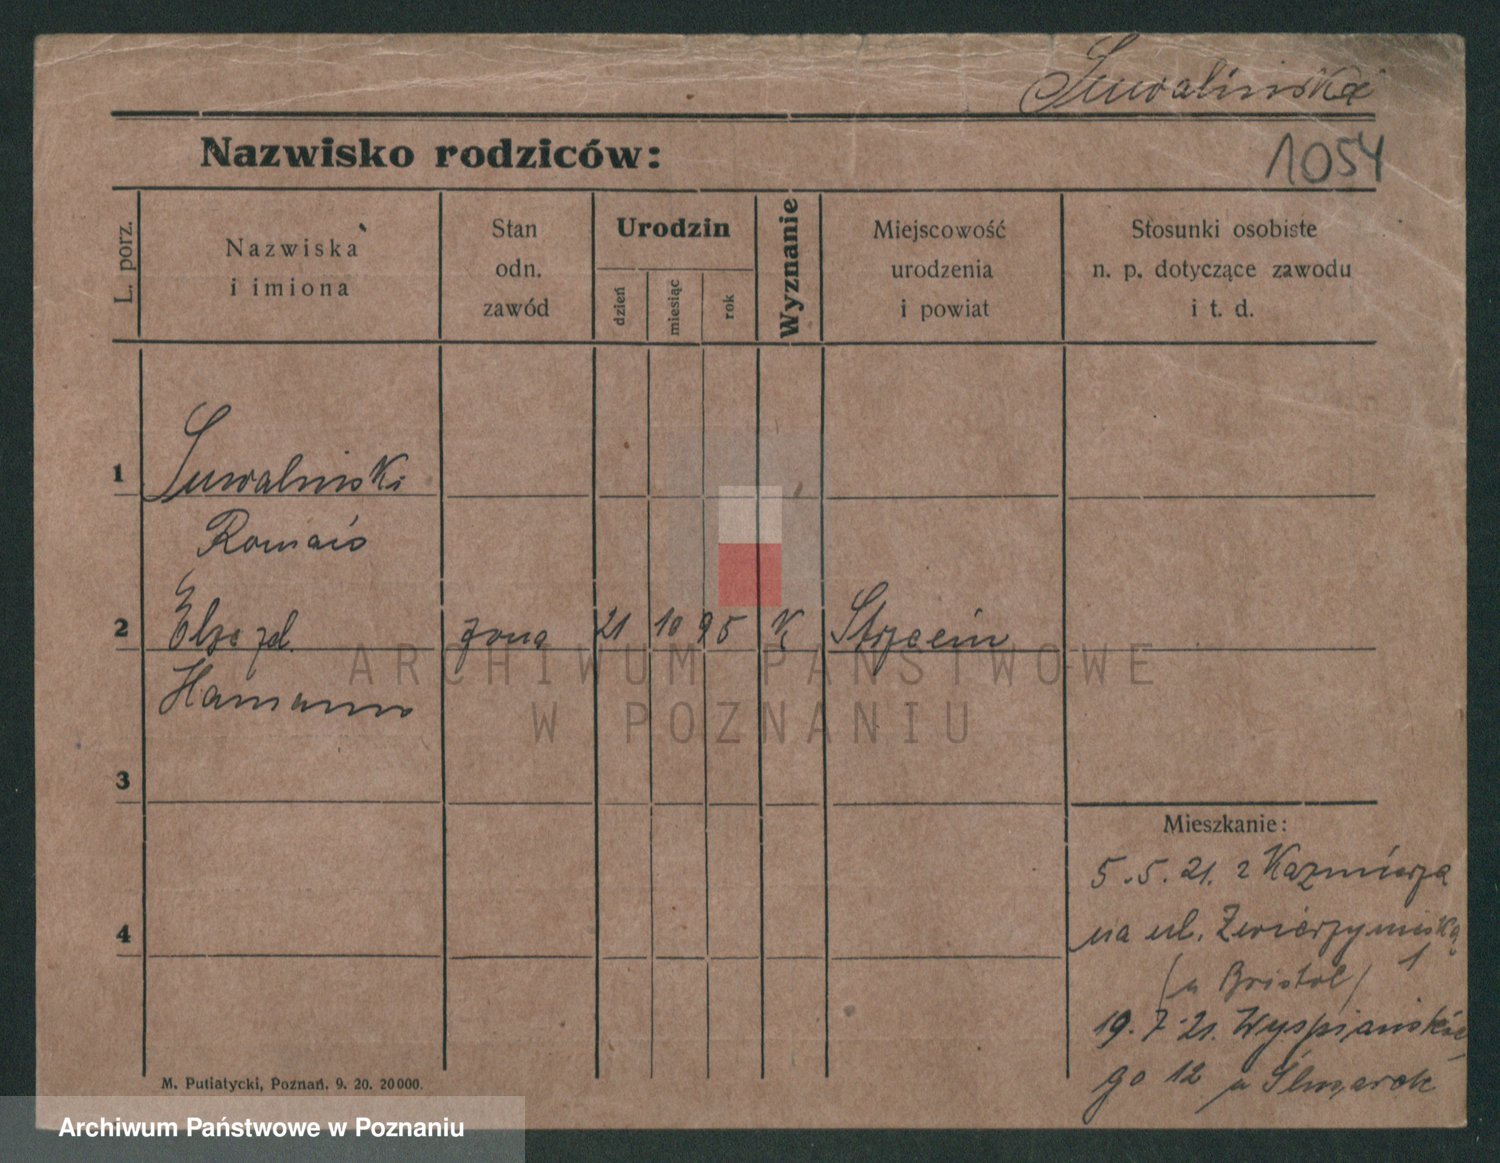 Suwalińska
Nazwisko rodziców:
1054
L. porz.
Nazwiska
i imiona
Stan
odn.
zawód
Urodzin
dzień
miesiąc
rok
Wyznanie
Miejscowość
urodzenia
i powiat
Stosunki osobiste
n. p. dotyczące zawodu
i t. d.
1
Suwalinski
2
żona 21 10 95 K
Hamann
3
Mieszkanie:
5.5.21. z Kazmierza
4
na ul. Zwierzyniecką
1
(u Bristol)
19.7.21. Wyspiańskie
go 12 u
M. Putiatycki, Poznań. 9. 20. 20000.
ARCHIWUM PAŃSTWOWE
W POZNANIU
Archiwum Państwowe w Poznaniu